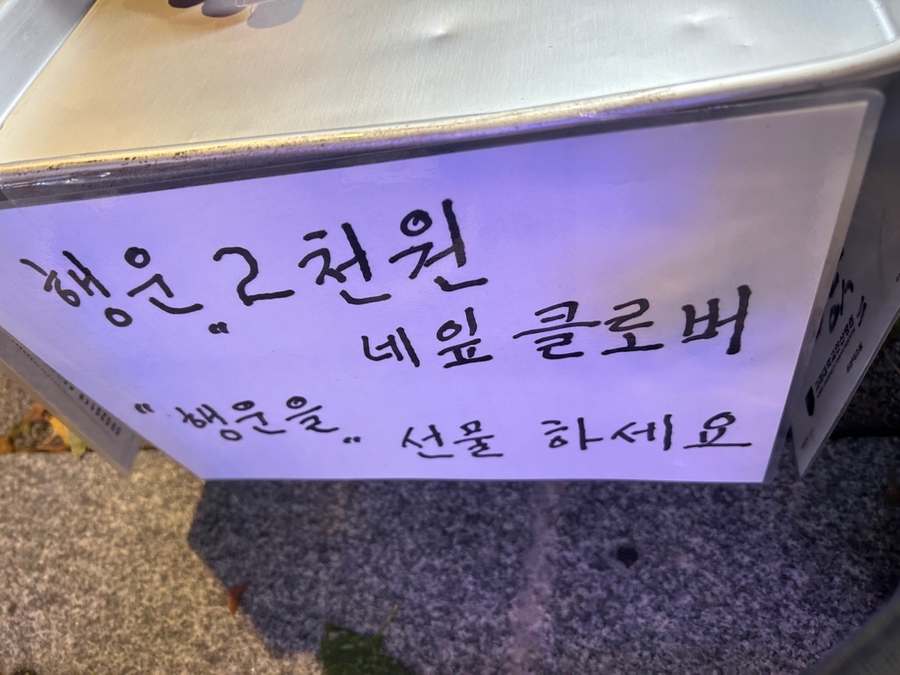 행운„2천원
네잎 클로버
“행운을„ 선물 하세요